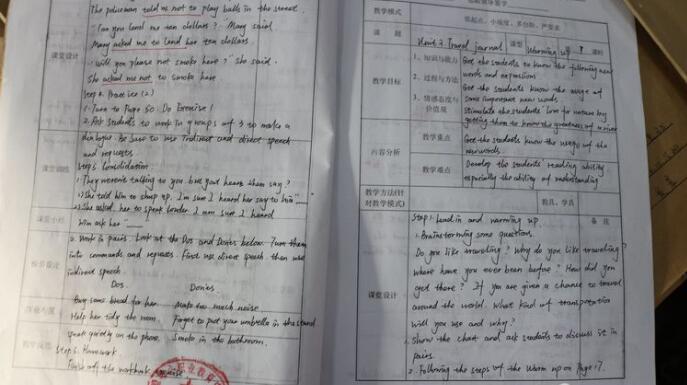 The policeman told me not to play balls in the street.
"Can you lend me ten dollars?" Mary said.
Mary asked me to lend her ten dollars.
"Will you please not smoke here?" She said.
She asked me not to smoke here.
课堂设计
Step 4. Practice (2)
1. Turn to Page 50. Do Exercise 1
2. Ask students to work in groups of 3 to make a
dialogue. Be sure to use indirect and direct speech
and requests
课堂训练
Step 5 Consolidation
1. They weren't talking to you but you heard them say?
She told him to shup up. I'm sure I heard her say to him "
She asked her to speak louder. I am sure I heard
课堂小结
him ask her "
2. Work in pairs. Look at the Dos and Don'ts below. Turn them
into commands and requests. First use direct speech then use
indirect speech.
Dos Donies
Buy some bread for her Make too much noise
Help her tidy the room. Forget to put your umbrella in the stand
Speak quietly on the phone. Smoke in the bathroom.
Step 6. Homework
Finish off the workbook exercise
教学模式
低起点,小坡度,多台阶,严要求
课 题
Unit 3 Travel journal
课型
Warming up
课时
教学目标
1. 知识与能力
2. 过程与方法
3. 情感态度与价值观
Get the students to know the following new
words and expressions
Get the students know the usage of
some important new words.
Stimulate the students' love for nature by
getting them to know the greatness of a river
内容分析
教学重点
Get the students know the usage of the
new words
教学难点
Develop the students' reading ability
especially the ability of understanding
教学方法(针对教学模式)
教具、学具
课堂设计
备 注
Step 1. Lead in and warming up
1. Brainstorming some questions.
Do you like traveling? Why do you like traveling?
Where have you ever been before? How did you
get there? If you are given a chance to travel
around the world. What kind of transportation
will you use and why?
Show the chart and ask students to discuss it in
pairs.
2. Following the steps of the warm up on Page 17.